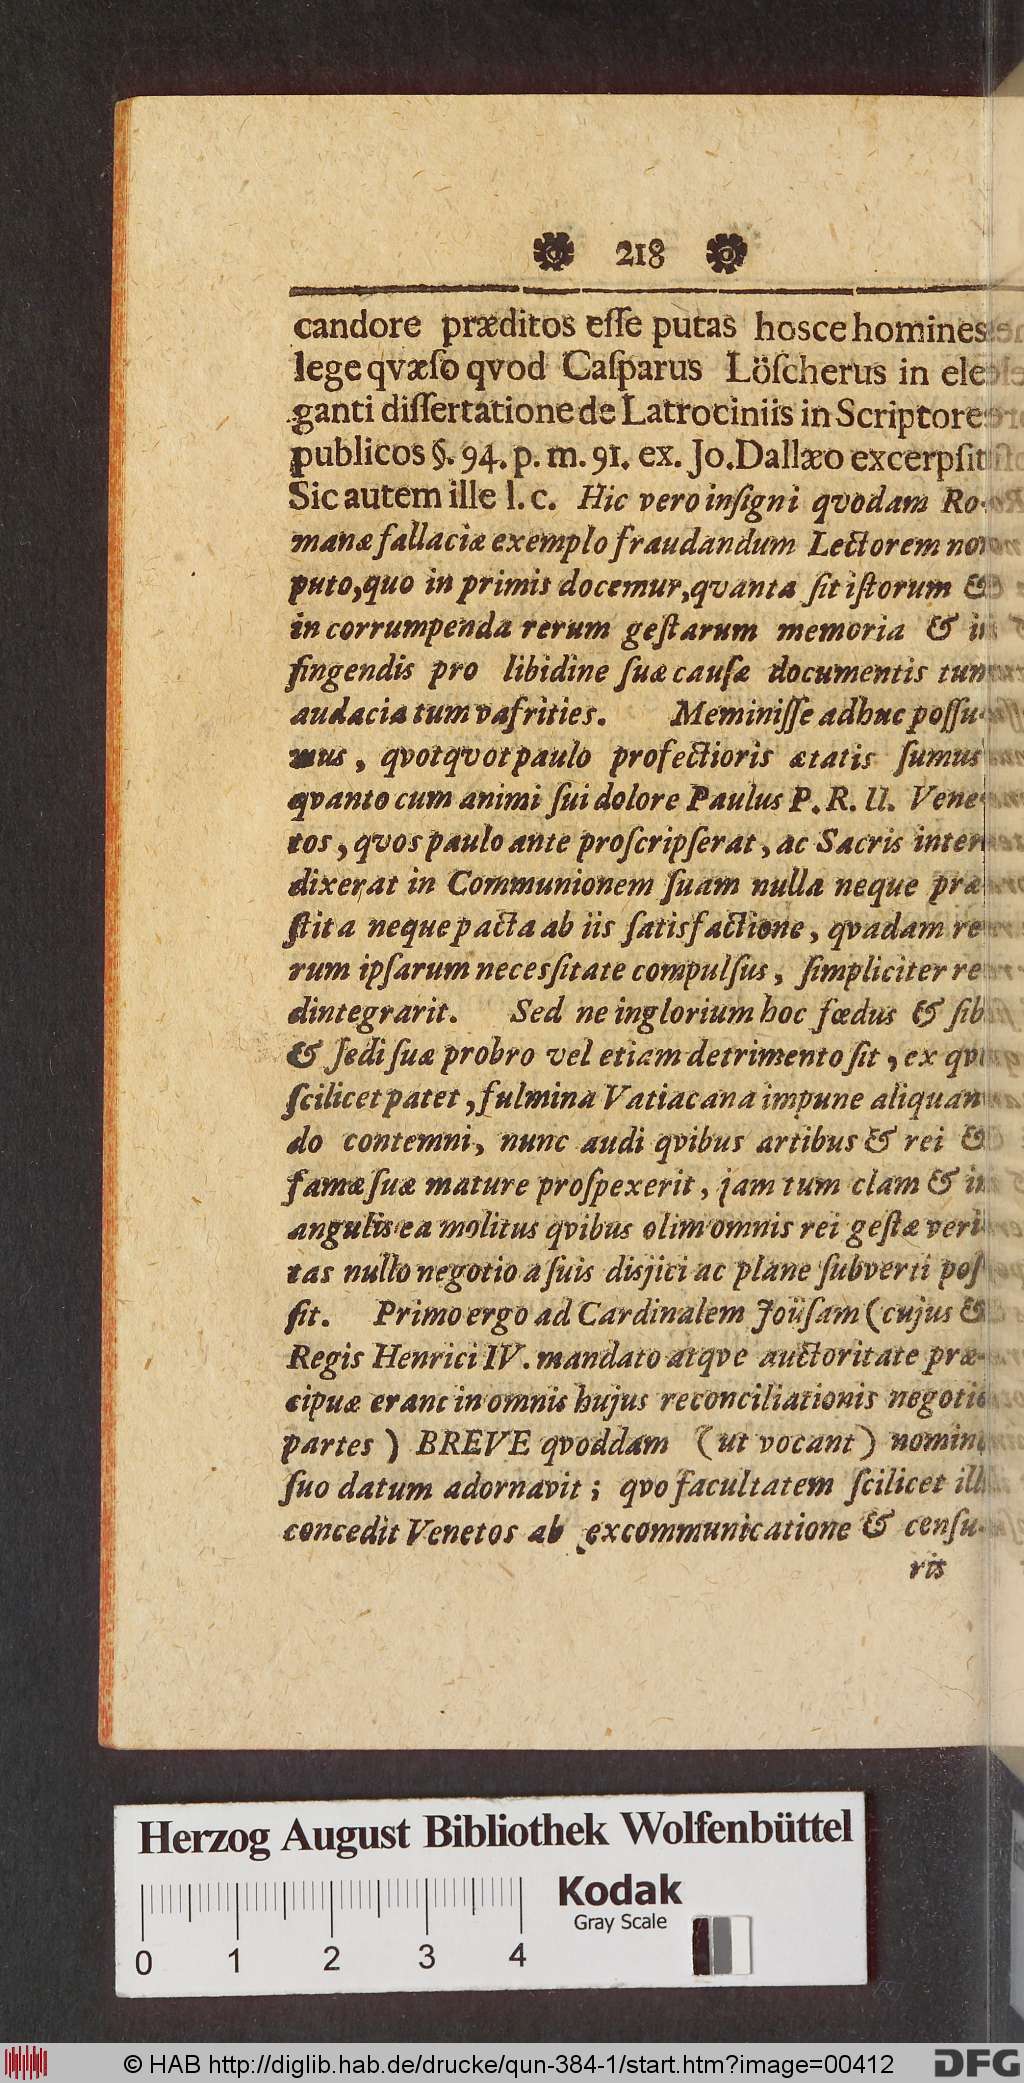 218
candore præditos eſſe putas hosce homines
lege qvæſo qvod Caſparus Löſcherus in ele
ganti diſſertatione de Latrociniis in Scriptore
publicos §. 94. p. m. 91. ex. Jo. Dallæo excerpſit
Sic autem ille l. c. Hic vero inſigni qvodam Ro-
manæ fallaciæ exemplo fraudandum Lectorem no
puto, quo in primis docemur, qvanta ſit iſtorum &
in corrumpenda rerum geſtarum memoria & in
fingendis pro libidine ſuæ cauſæ documentis tum
audacia tum vafrities. Meminiſſe adhuc poſſu-
mus, qvotqvot paulo profectioris ætatis ſumus
qvanto cum animi ſui dolore Paulus P. R. II. Vene-
tos, qvos paulo ante proſcripſerat, ac Sacris inter
dixerat in Communionem ſuam nulla neque præ
ſtita neque pacta ab iis ſatisfactione, qvadam re
rum ipſarum necesſitate compulſus, ſimpliciter re
dintegrarit. Sed ne inglorium hoc fœdus & ſibi
& ſedi ſuæ probro vel etiam detrimento ſit, ex qvo
ſcilicet patet, fulmina Vatiacana impune aliquan
do contemni, nunc audi qvibus artibus & rei &
famæ ſuæ mature proſpexerit, jam tum clam & in
angulis ea molitus qvibus olim omnis rei geſtæ veri
tas nullo negotio a ſuis disjici ac plane ſubverti poſ
ſit. Primo ergo ad Cardinalem Joüſam (cujus &
Regis Henrici IV. mandato atqve auctoritate præ-
cipuæ erant in omnis hujus reconciliationis negotio
partes) BREVE qvoddam (ut vocant) nomine
ſuo datum adornavit; qvo facultatem ſcilicet illi
concedit Venetos ab excommunicatione & cenſu-
ris
Herzog August Bibliothek Wolfenbüttel
Kodak
Gray Scale
0 1 2 3 4
© HAB http://diglib.hab.de/drucke/qun-384-1/start.htm?image=00412
DFG